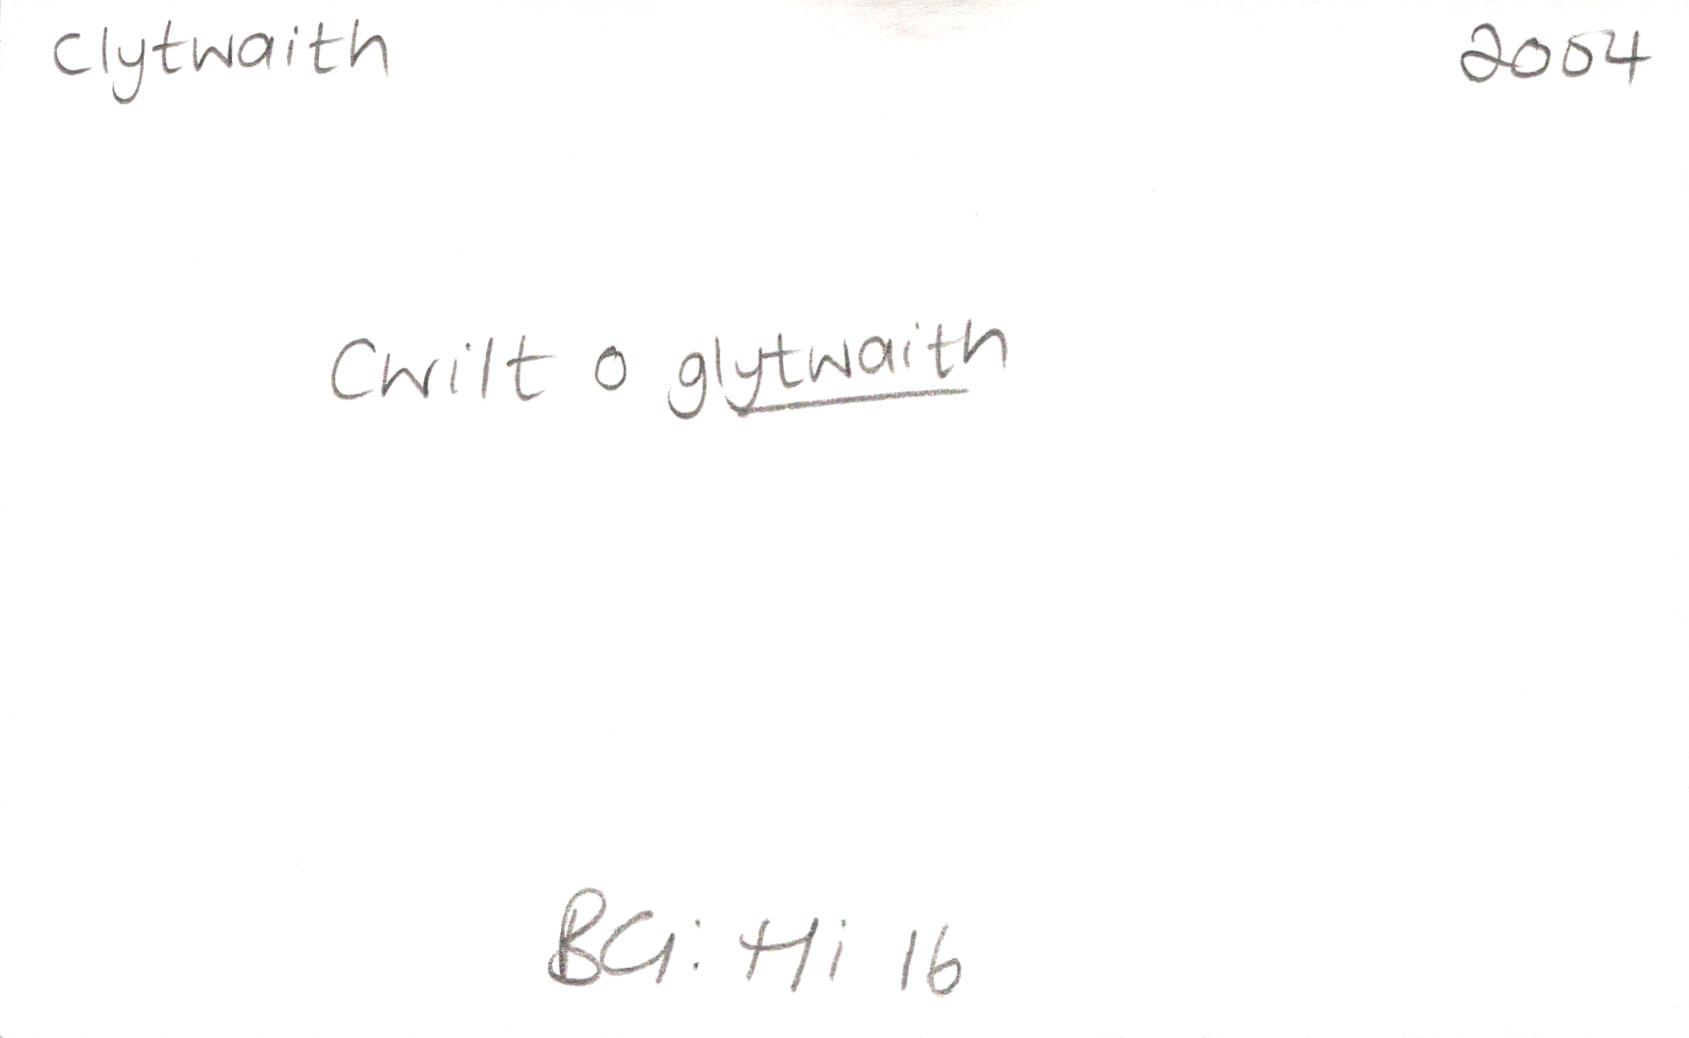 Clytwaith 2004
Cwilt o glytwaith
BG: Hi 16